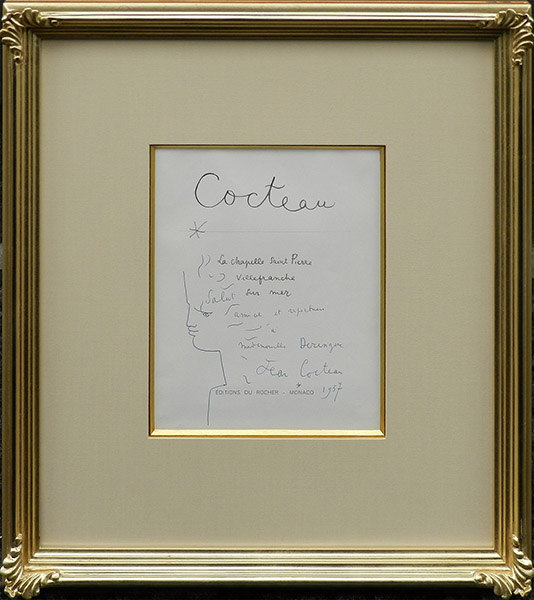 Cocteau
La Chapelle Saint Pierre
Villefranche
Salut sur mer
amical et
à
Mademoiselle
Jean Cocteau
EDITIONS DU ROCHER - MONACO 1957